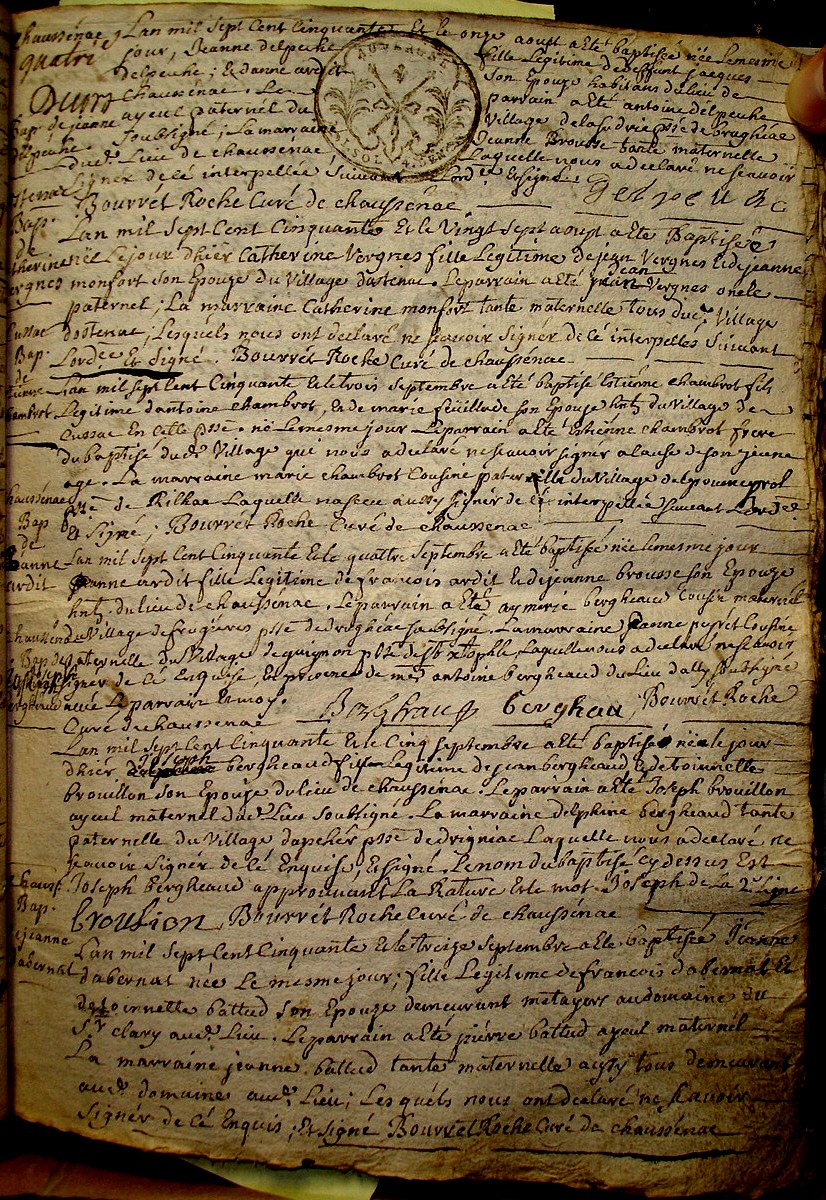 chaussénac
quatre
Deux
Bap. de jeanne
delpeuhe
Lan mil sept Cent Cinquante Et le onze aoust a Eté baptisée née le mesme
jour, Jeanne delpeuhe fille Legitime de deffunt jacques
delpeuhe; Et danne ardit son Epouze habitans du lieu de
chaussenac. Le parrain a Eté antoine delpeuhe
ayeul paternel du Village
soubsigné; La marraine Jeanne Brousse tante maternelle
dud. Lieu de chaussenac Laquelle nous a declaré ne scavoir
signer de cé interpellée suivant Lord.ce Et signé.
Bourrét Roche Curé de chaussénac. delpeuhe
ostenac
Bap.
de
Catherine
Vergnes
Lan mil sept Cent Cinquante Et le Vingt sept aoust a Eté Baptisée
née Le jour dhiér Catherine Vergnes fille Legitime de jean Vergnes Et de jeanne
monfort son Epouze du Village dostenac. Le parrain a Eté jean Vergnes oncle
paternel; La marraine Catherine monfort tante maternelle tous dud. Village
dostenac; Lesquels nous ont declaré ne scavoir signér de cé interpellés suivant
Lord.ce Et signé. Bourrét Roche Curé de chaussenac
Cussac
Bap.
de
Estienne
chambrot
Lan mil sept Cent Cinquante Et le trois septembre a Eté baptisé Estiénne chambrot fils
Legitime dantoine chambrot, Et de marie feuillade son Epouze hnts du Village de
Cussac En cette psse. né Le mesme jour Le parrain a Eté Estienne chambrot frere
du baptisé dud. Village qui nous a declaré ne scavoir signer a Cause de son jeune
age. La marraine marie chambrot Cousine paternelle du Village
psse de Rilhac Laquelle na sceu aussy signér de cé interpellée suivant Lord.ce
Et signé; Bourrét Roche Curé de chaussenac
chaussénac
Bap.
de
Jeanne
ardit
Lan mil sept Cent Cinquante Et le quattre septembre a Eté baptisée née Le mesme jour
Jeanne ardit fille Legitime de francois ardit Et de jeanne brousse son Epouze
hnts du lieu de chaussénac. Le parrain a Eté aymerie bergheaud Cousin maternel
du Village de frugieres psse de soubsigné. La marraine jeanne Cousine
paternelle du Village de psse de Laquelle nous a declaré ne scavoir
signer de cé Enquise, Et presence de me antoine bergheaud du Lieu dally soubsigné
avec Le parrain Et moy.
Curé de chaussenac Berghaud berghau Bourrét Roche
chaussénac
Bap. de
joseph
bergheaud
Lan mil sept Cent Cinquante Et le Cinq septembre a Eté baptisé né Le jour
dhiér joseph bergheaud fils Legitime de jean bergheaud Et de toinnette
brouillon son Epouze du lieu de chaussénac. Le parrain a Eté joseph brouillon
ayeul maternel dud. Lieu soubsigné. La marraine delphine bergheaud tante
paternelle du Village dapchér psse de drigniac Laquelle nous a declaré ne
scavoir signér de cé Enquise, Et signé. Le nom du baptisé Cy dessus Est
Joseph bergheaud approuvant La Rature Et le mot Joseph de La 2e ligne
broulion, Bourrét Roche Curé de chaussénac
chauss.
Bap.
de jeanne
dabernat
Lan mil sept Cent Cinquante Et le treize septembre a Eté baptisée Jeanne
dabernat née Le mesme jour; fille Legitime de francois dabernat Et
de toinnette battud son Epouze demeurant metayers au domaine du
Sr clary aud. Lieu. Le parrain a Eté piérre battud ayeul maternél
La marraine jeanne battud tante maternelle aussy tous demeurant
aud. domaine aud. Lieu; Les quéls nous ont declaré ne scavoir
signér de cé Enquis; Et signé Bourret Roche Curé de chaussénac